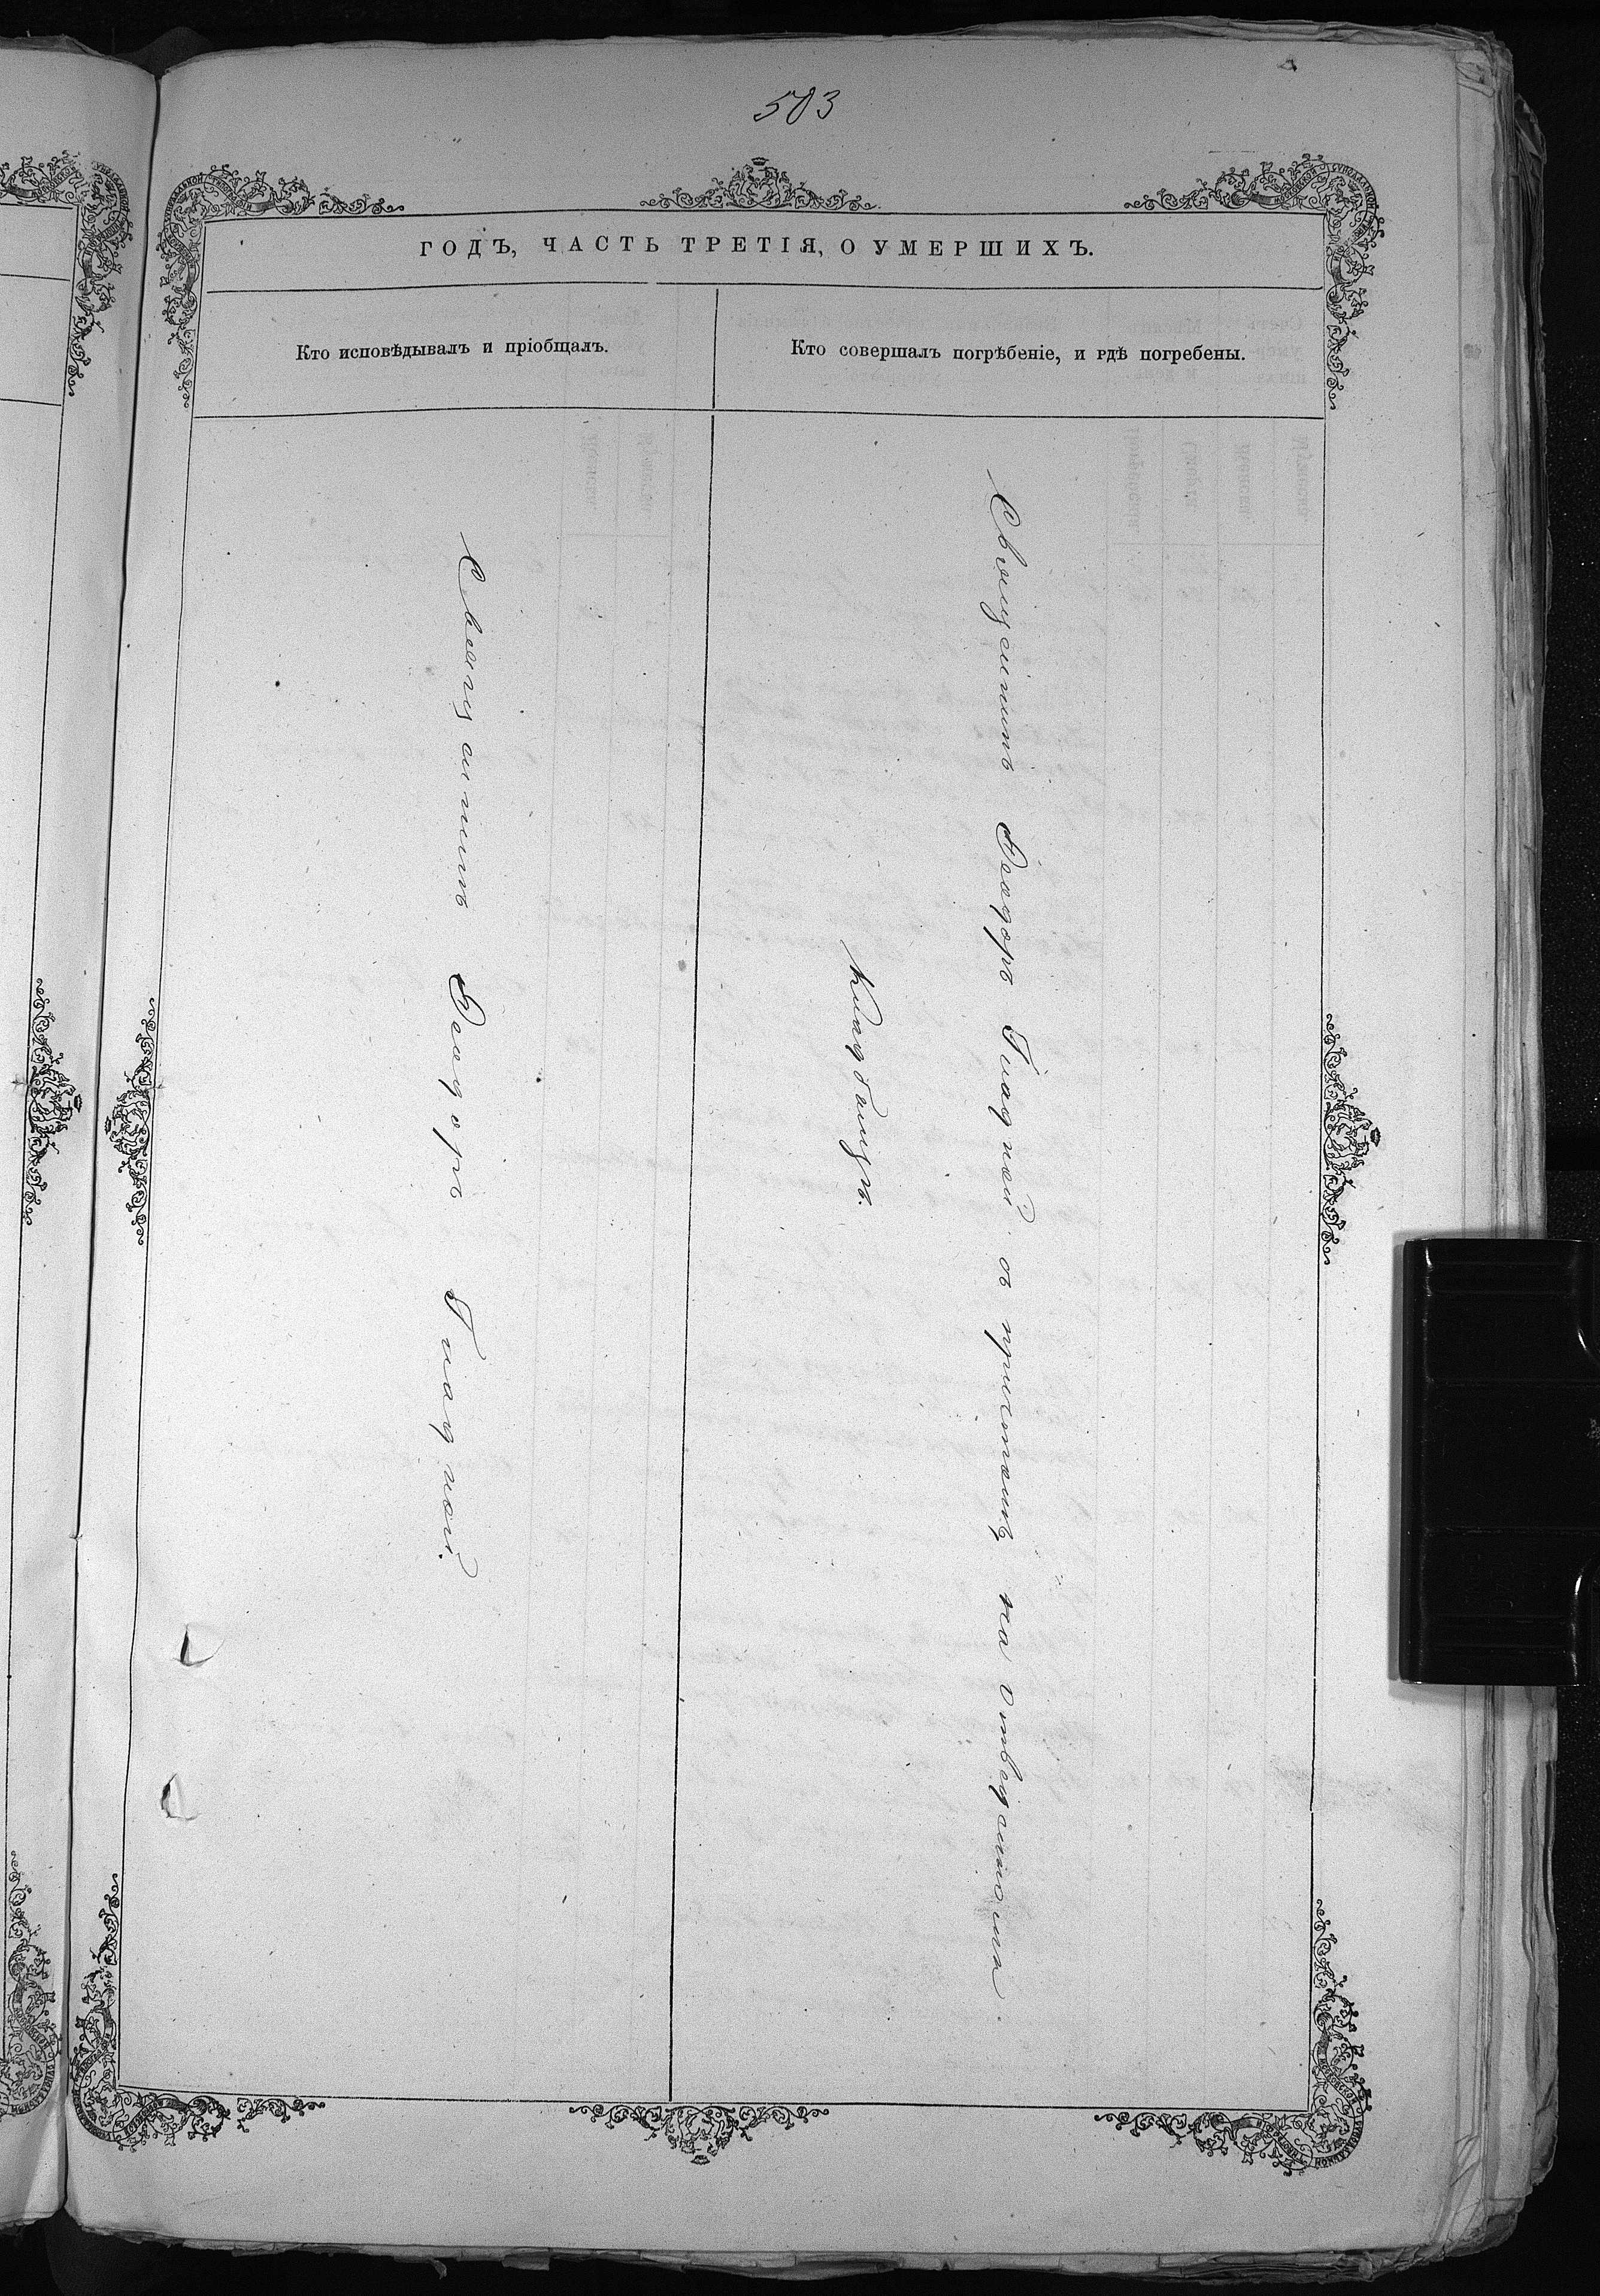 503
ГОДЪ, ЧАСТЬ ТРЕТІЯ, О УМЕРШИХЪ.
Кто исповѣдывалъ и пріобщалъ.
Кто совершалъ погрѣбеніе, и гдѣ погребены.
Священникъ Ѳеодоръ Гладкой.
Священникъ Ѳеодоръ Гладкой съ причтомъ на Отведенномъ
Кладбищѣ.